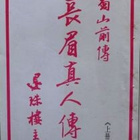 蜀山前傳
長眉真人傳
還珠樓主